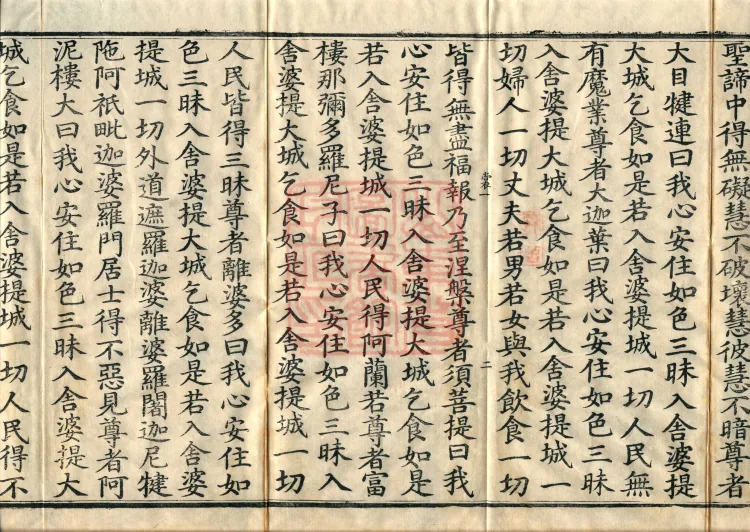 聖諦中得無礙慧不破壞慧彼慧不暗尊者
大目犍連曰我心安住如色三昧入舍婆提
大城乞食如是若入舍婆提城一切人民無
有魔業尊者大迦葉曰我心安住如色三昧
入舍婆提大城乞食如是若入舍婆提城一
切婦人一切丈夫若男若女與我飲食一切
皆得無盡福報乃至涅槃尊者須菩提曰我
心安住如色三昧入舍婆提大城乞食如是
若入舍婆提城一切人民得阿蘭若尊者富
樓那彌多羅尼子曰我心安住如色三昧入
舍婆提大城乞食如是若入舍婆提城一切
人民皆得三昧尊者離婆多曰我心安住如
色三昧入舍婆提大城乞食如是若入舍婆
提城一切外道遮羅迦婆離婆羅闍迦尼犍
陁阿祇毗迦婆羅門居士得不惡見尊者阿
泥樓大曰我心安住如色三昧入舍婆提大
城乞食如是若入舍婆提城一切人民得不